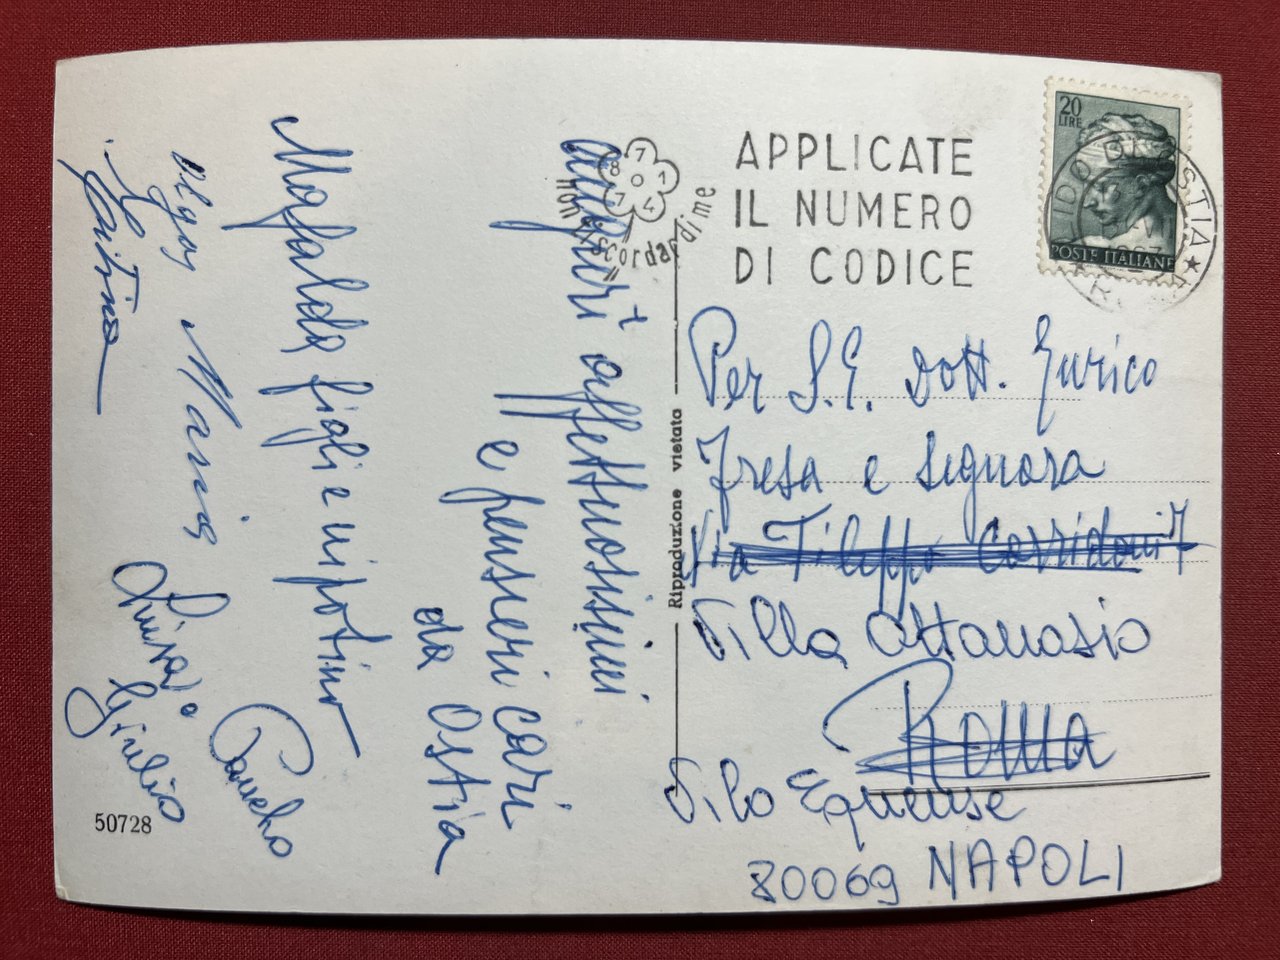 auguri affettuosissimi
e pensieri cari
da Ostia
Mafalda figli e nipotino
Olga Maria
Luisa
Giulio
7
8 0 1
7 4
non ti scordar di me
APPLICATE
IL NUMERO
DI CODICE
20
LIRE
POSTE ITALIANE
LIDO DI OSTIA
Riproduzione vietata
Per S.E. Dott. Enrico
Fresa e Signora
Via Filippo Corridoni 7
Villa Attanasio
Roma
Vico Equense
80069 NAPOLI
50728